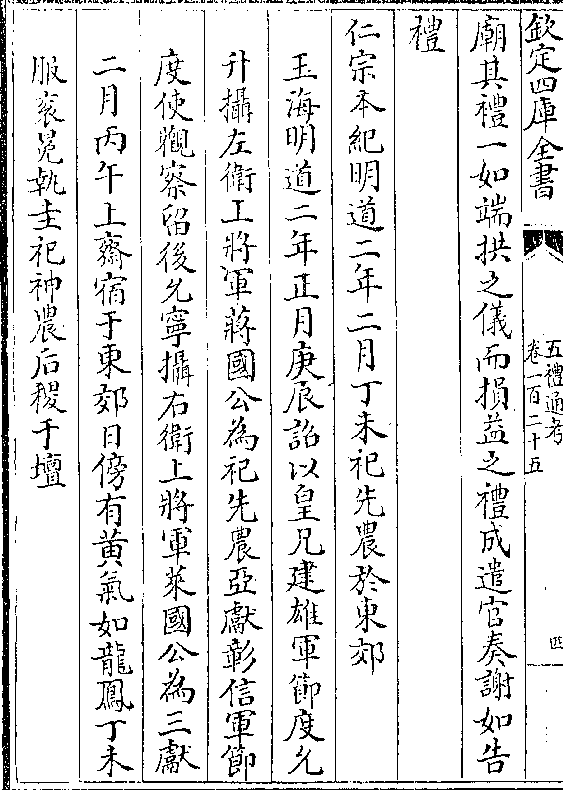 欽定四庫全書
五禮通考
卷一百二十五
四
廟其禮一如端拱之儀而損益之禮成遣官奏謝如告
禮
仁宗本紀明道二年二月丁未祀先農於東郊
玉海明道二年正月庚辰詔以皇兄建雄軍節度允
升攝左衛上將軍蔣國公為祀先農亞獻彰信軍節
度使觀察留後允寧攝右衛上將軍萊國公為三獻
二月丙午上齋宿于東郊日傍有黃氣如龍鳳丁未
服衮冕執圭祀神農后稷于壇